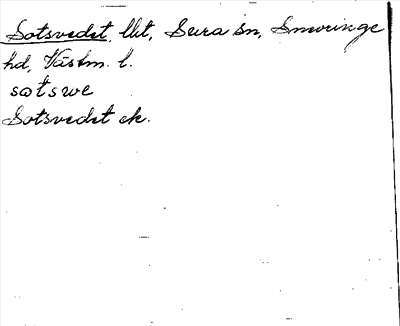 Sotsvedet, llt, Sura sn, Snevringe
hd, Västm. l.
sɷtswe
Sotsvedet ek.